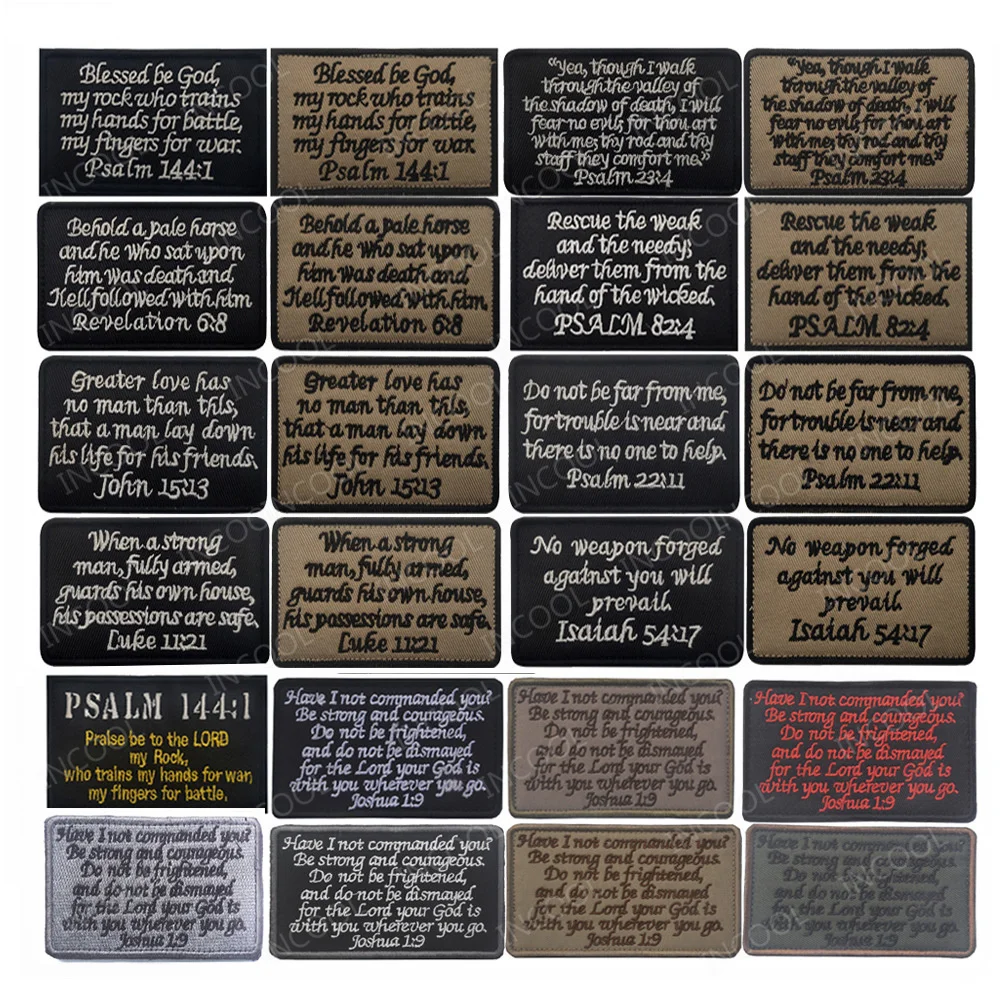 Blessed be God,
my rock who trains
my hands for battle,
my fingers for war.
Psalm 144:1
Blessed be God,
my rock who trains
my hands for battle,
my fingers for war.
Psalm 144:1
"Yea, though I walk
through the valley of
the shadow of death, I will
fear no evil; for thou art
with me; thy rod and thy
staff they comfort me."
Psalm 23:4
"Yea, though I walk
through the valley of
the shadow of death, I will
fear no evil; for thou art
with me; thy rod and thy
staff they comfort me."
Psalm 23:4
Behold a pale horse
and he who sat upon
him was death and
Hell followed with him
Revelation 6:8
Behold a pale horse
and he who sat upon
him was death and
Hell followed with him
Revelation 6:8
Rescue the weak
and the needy;
deliver them from the
hand of the wicked.
PSALM 82:4
Rescue the weak
and the needy;
deliver them from the
hand of the wicked.
PSALM 82:4
Greater love has
no man than this,
that a man lay down
his life for his friends.
John 15:13
Greater love has
no man than this,
that a man lay down
his life for his friends.
John 15:13
Do not be far from me,
for trouble is near and
there is no one to help.
Psalm 22:11
Do not be far from me,
for trouble is near and
there is no one to help.
Psalm 22:11
When a strong
man, fully armed,
guards his own house,
his possessions are safe.
Luke 11:21
When a strong
man, fully armed,
guards his own house,
his possessions are safe.
Luke 11:21
No weapon forged
against you will
prevail.
Isaiah 54:17
No weapon forged
against you will
prevail.
Isaiah 54:17
PSALM 144:1
Praise be to the LORD
my Rock,
who trains my hands for war,
my fingers for battle.
Have I not commanded you?
Be strong and courageous.
Do not be frightened,
and do not be dismayed
for the Lord your God is
with you wherever you go.
Joshua 1:9
Have I not commanded you?
Be strong and courageous.
Do not be frightened,
and do not be dismayed
for the Lord your God is
with you wherever you go.
Joshua 1:9
Have I not commanded you?
Be strong and courageous.
Do not be frightened,
and do not be dismayed
for the Lord your God is
with you wherever you go.
Joshua 1:9
Have I not commanded you?
Be strong and courageous.
Do not be frightened,
and do not be dismayed
for the Lord your God is
with you wherever you go.
Joshua 1:9
Have I not commanded you?
Be strong and courageous.
Do not be frightened,
and do not be dismayed
for the Lord your God is
with you wherever you go.
Joshua 1:9
Have I not commanded you?
Be strong and courageous.
Do not be frightened,
and do not be dismayed
for the Lord your God is
with you wherever you go.
Joshua 1:9
Have I not commanded you?
Be strong and courageous.
Do not be frightened,
and do not be dismayed
for the Lord your God is
with you wherever you go.
Joshua 1:9
INCOOL